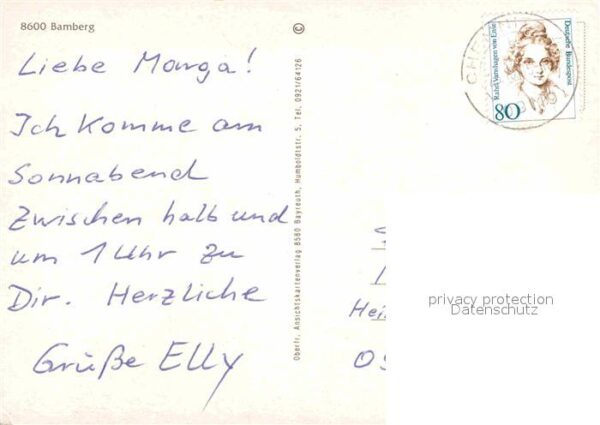 8600 Bamberg
©
Liebe Marga!
Ich komme am
Sonnabend
zwischen halb und
um 1 Uhr zu
Dir. Herzliche
Grüße Elly
Oberfr. Ansichtskartenverlag 8580 Bayreuth, Humboldtstr. 5, Tel. 0921/64126
Deutsche Bundespost
Rahel Varnhagen von Ense
80
CHE
Hei
privacy protection
Datenschutz